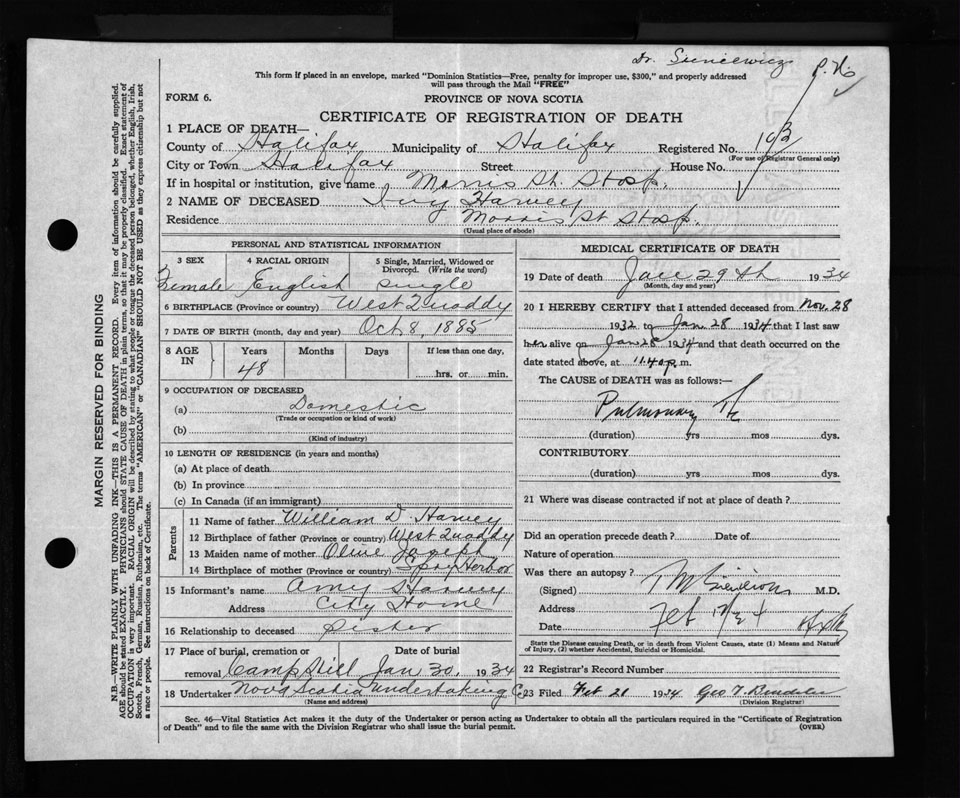 Dr.
P. No
This form if placed in an envelope, marked "Dominion Statistics—Free, penalty for improper use, $300," and properly addressed
will pass through the Mail "FREE"
FORM 6.
PROVINCE OF NOVA SCOTIA
CERTIFICATE OF REGISTRATION OF DEATH
1 PLACE OF DEATH—
County of Halifax Municipality of Halifax Registered No. 103
(For use of Registrar General only)
City or Town Halifax Street House No.
If in hospital or institution, give name Morris St. Hosp.
2 NAME OF DECEASED Ivy Harvey
Residence Morris St Hosp.
(Usual place of abode)
PERSONAL AND STATISTICAL INFORMATION
3 SEX 4 RACIAL ORIGIN 5 Single, Married, Widowed or
Divorced. (Write the word)
Female English Single
6 BIRTHPLACE (Province or country) West Quoddy
7 DATE OF BIRTH (month, day and year) Oct 8, 1885
8 AGE IN Years Months Days If less than one day,
48 hrs. or min.
9 OCCUPATION OF DECEASED
(a) Domestic
(Trade or occupation or kind of work)
(b)
(Kind of industry)
10 LENGTH OF RESIDENCE (in years and months)
(a) At place of death
(b) In province
(c) In Canada (if an immigrant)
Parents
11 Name of father William D. Harvey
12 Birthplace of father (Province or country) West Quoddy
13 Maiden name of mother Olive Joseph
14 Birthplace of mother (Province or country) Spry Harbor
15 Informant's name Amy Harvey
Address City Home
16 Relationship to deceased Sister
17 Place of burial, cremation or Date of burial
removal Camp Hill Jan 30, 1934
18 Undertaker Nova Scotia Undertaking Co
(Name and address)
MEDICAL CERTIFICATE OF DEATH
19 Date of death Jan 29th 1934
(Month, day and year)
20 I HEREBY CERTIFY that I attended deceased from Nov. 28
1932 to Jan. 28 1934 that I last saw
her alive on Jan 28 1934 and that death occurred on the
date stated above, at 11.40 p.m.
The CAUSE of DEATH was as follows:—
Pulmonary Tb
(duration) yrs mos dys.
CONTRIBUTORY
(duration) yrs mos dys.
21 Where was disease contracted if not at place of death ?
Did an operation precede death ? Date of
Nature of operation
Was there an autopsy ?
(Signed) M.D.
Address
Date Feb
State the Disease causing Death, or in death from Violent Causes, state (1) Means and Nature
of Injury, (2) whether Accidental, Suicidal or Homicidal.
22 Registrar's Record Number
23 Filed Feb 21 1934 Geo T.
(Division Registrar)
Sec. 46—Vital Statistics Act makes it the duty of the Undertaker or person acting as Undertaker to obtain all the particulars required in the "Certificate of Registration
of Death" and to file the same with the Division Registrar who shall issue the burial permit.
(OVER)
MARGIN RESERVED FOR BINDING
N.B.—WRITE PLAINLY WITH UNFADING INK—THIS IS A PERMANENT RECORD. Every item of information should be carefully supplied.
AGE should be stated EXACTLY. PHYSICIANS should STATE CAUSE OF DEATH in plain terms, so that it may be properly classified. Exact statement of
OCCUPATION is very important. RACIAL ORIGIN will be described by stating to what people or tongue the deceased person belonged, whether English, Irish,
Scotch, French, German, Russian, Ruthenian, etc. The terms "AMERICAN" or "CANADIAN" SHOULD NOT BE USED as they express citizenship but not
a race or people. See instructions on back of Certificate.